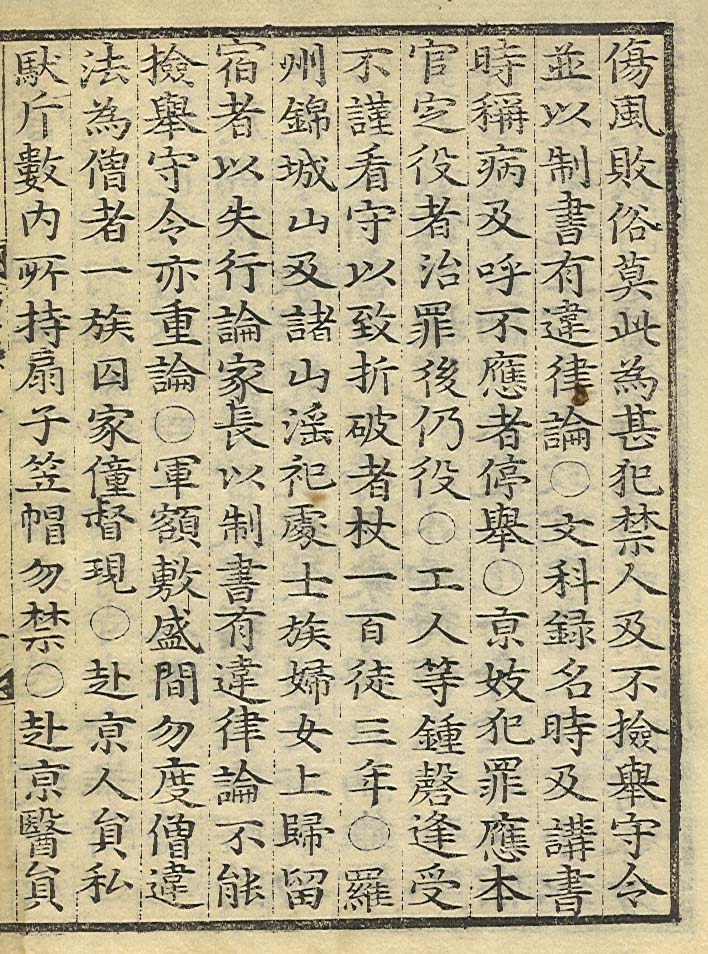 傷風敗俗莫此為甚犯禁人及不撿舉守令
並以制書有違律論○文科録名時及講書
時稱病及呼不應者停舉○亰妓犯罪應本
官定役者治罪後仍役○工人等鍾磬逢受
不謹看守以致折破者杖一百徒三年○羅
州錦城山及諸山滛祀處士族婦女上歸留
宿者以失行論家長以制書有違律論不能
撿舉守令亦重論○軍額敷盛間勿度僧違
法為僧者一族囚家僮督現○赴亰人負私
馱斤數內所持扇子笠帽勿禁○赴亰醫負